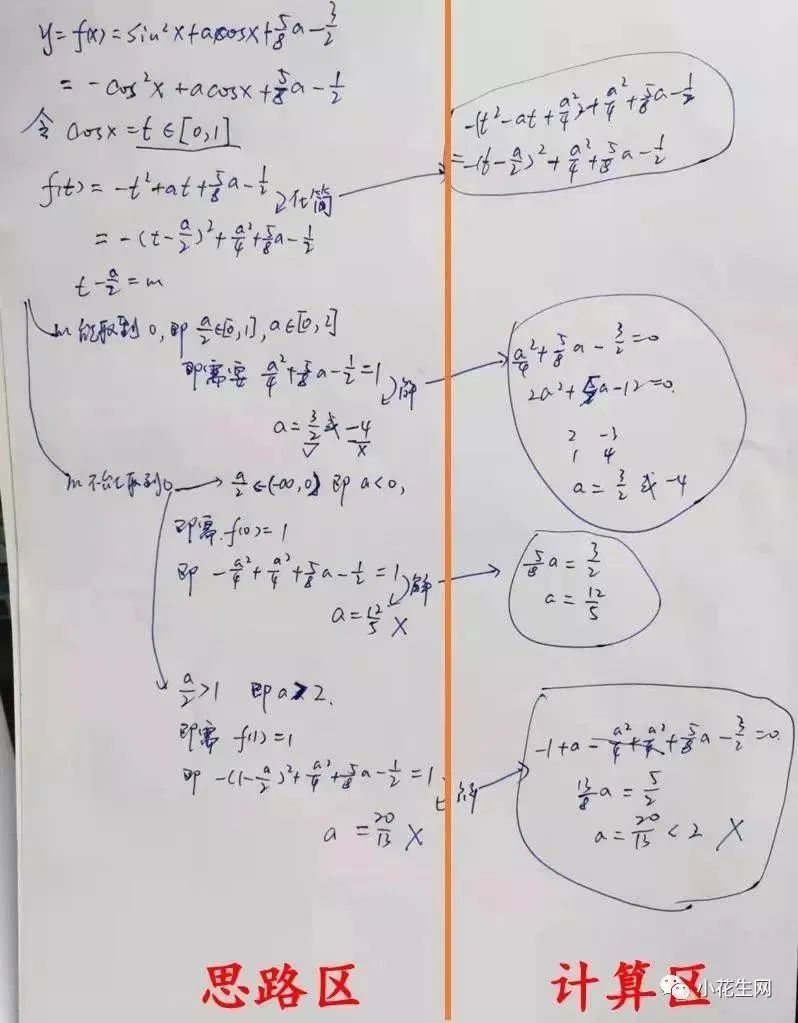 y=f(x)=sin²x+acosx+5/8a-3/2
=-cos²x+acosx+5/8a-1/2
令 cosx=t∈[0,1]
f(t)=-t²+at+5/8a-1/2 化简
=-(t-a/2)²+a²/4+5/8a-1/2
t-a/2=m
m能取到0,即a/2∈[0,1],a∈[0,2]
即需要 a²/4+5/8a-1/2=1 解
a=3/2或-4
√ ×
m不能取到0 → a/2∈(-∞,0) 即a<0,
即需f(0)=1
即 -a²/4+a²/4+5/8a-1/2=1 解
a=12/5 ×
a/2>1 即a>2.
即需 f(1)=1
即 -(1-a/2)²+a²/4+5/8a-1/2=1 解
a=20/13 ×
思路区
-(t²-at+a²/4)+a²/4+5/8a-1/2
=-(t-a/2)²+a²/4+5/8a-1/2
a²/4+5/8a-3/2=0
2a²+5a-12=0.
2 -3
1 4
a=3/2或-4
5/8a=3/2
a=12/5
-1+a-a²/4+a²/4+5/8a-3/2=0.
13/8a=5/2
a=20/13<2 ×
计算区
小花生网